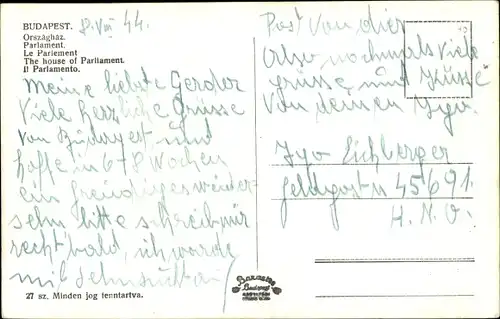 BUDAPEST. 8. VIII 44.
Országház.
Parlament.
Le Parlement
The house of Parliament.
Il Parlamento.
Meine liebste Gerder
Viele herzliche Grüsse
von Budapest und
hoffe in 6-8 Wochen
ein freudiges wieder-
sehn bitte schreib mir
recht bald, ich warde
mit Sehnsucht auf
27 sz. Minden jog fenntartva.
Post von dir
Also nochmals viele
grüsse und Küsse
von deinen
Eichberger
Feldpost N 45691.
Barasits
Budapest